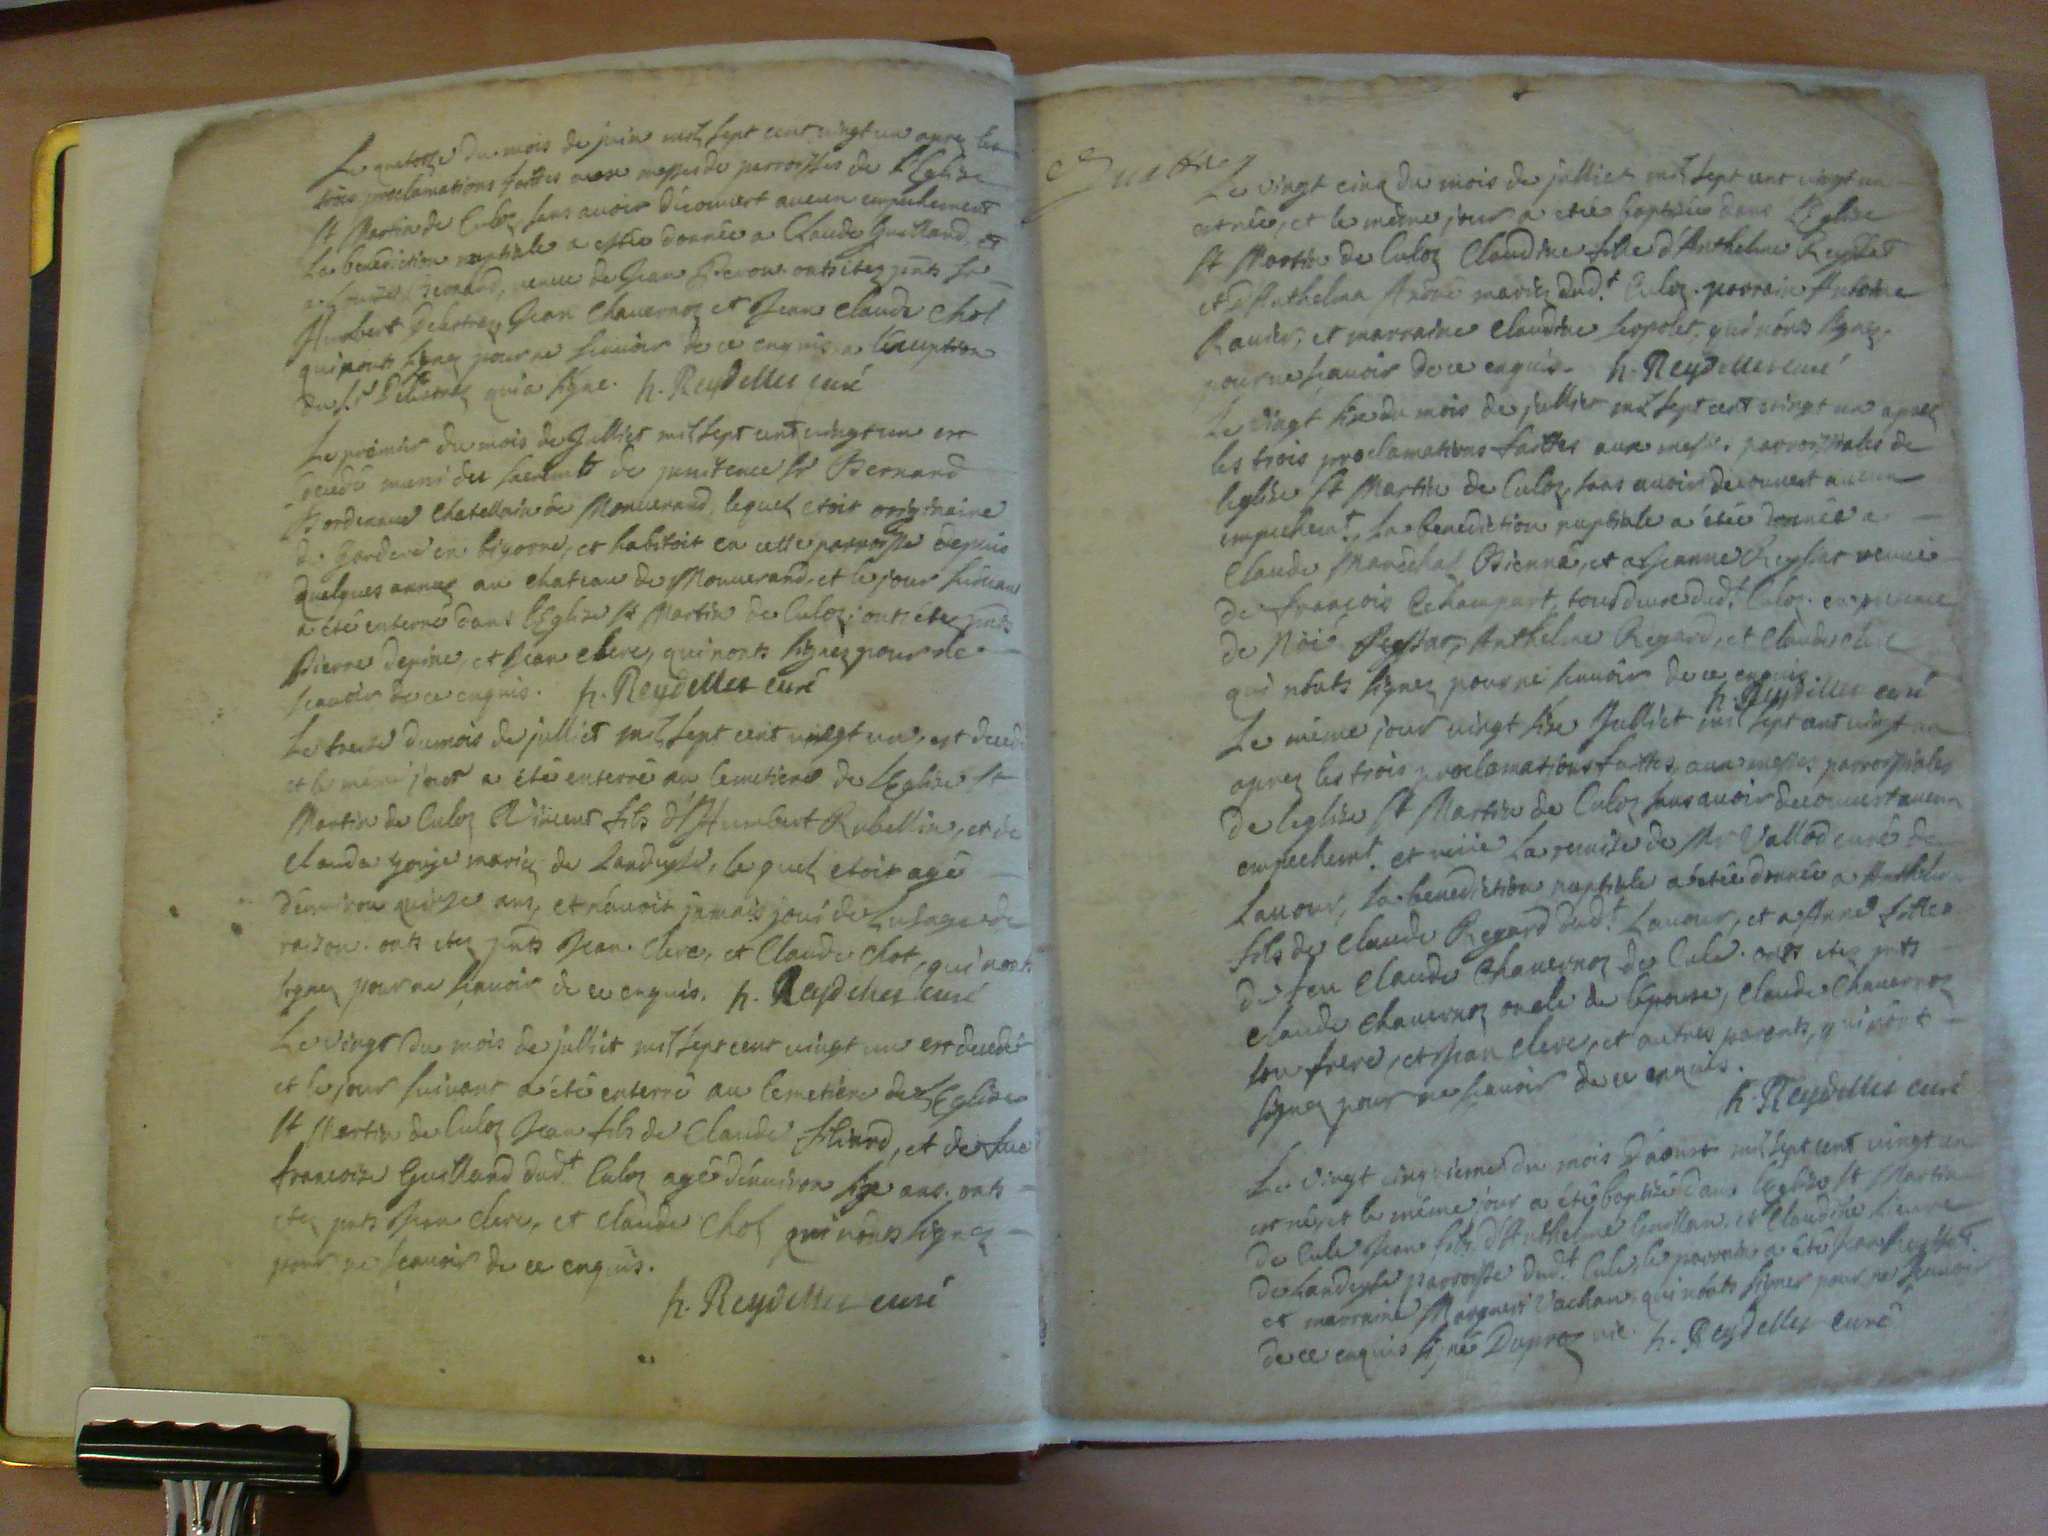 Le quatorze du mois de juin mil sept cent vingt un aprez les
trois proclamations faittes aux messes de parroisses de l'Eglise
St Martin de Culoz sans avoir découvert aucun empechement
La benediction nuptiale a estée donnée a Claude Guilland, et
a Bernard, veuve de Jean onts étez pnts Sr
Humbert Jean Chavernoz et Jean Claude Chol
qui nonts signez pour ne sçavoir de ce enquis a l'exception
du Sr qui a signe. h. Reydellet curé
Le premier du mois de Julliet mil sept cent vingt un est
decedé muni des sacremts de penitence Sr Bernard
Bordenave chatellain de Monverand, lequel etoit originaire
de en bigorre, et habitoit en cette parroisse depuis
quelques annez au chateau de Monverand, et le jour suivant
a été enterré dans l'Eglise St Martin de Culoz: onts étez pnts
Pierre depine, et Jean Clerc, qui nonts signez pour ne
scavoir de ce enquis. h. Reydellet curé
Le treize du mois de julliet mil sept cent vingt un, est decedé
et le méme jour a été enterré au Cemetiere de l'Eglise St
Martin de Culoz Vincent fils d'Humbert Rubellin, et de
Claude gonje mariez de Landeyse, lequel etoit agé
d'environ quinze ans, et n'avoit jamais joui de Lusage de
raison. onts etez pnts Jean Clerc, et Claude Chol, qui nonts
signez pour ne sçavoir de ce enquis. h. Reydellet curé
Le vingt du mois de julliet mil sept cent vingt un est decedé
et le jour suivant a été enterré au Cemetiere de l'Eglise
St Martin de Culoz Jean fils de Claude filiard, et de feue
francoise Guilland dudt Culoz agé d'environ six ans. onts
etez pnts Jean Clerc, et Claude Chol qui nonts signez
pour ne sçavoir de ce enquis.
h. Reydellet curé
Le vingt cinq du mois de julliet mil sept cent vingt un
est née, et le méme jour a etée baptisée dans l'Eglise
St Martin de Culoz Claudine fille d'Anthelme Reydet
et d'Anthelma André mariez dudt Culoz. parrain Antoine
Ravier, et marraine Claudine qui n'onts signez
pour ne scavoir de ce enquis. h. Reydellet curé
Le vingt six du mois de julliet mil sept cent vingt un aprez
les trois proclamations faittes aux messes parroissiales de
leglise St Martin de Culoz, sans avoir decouvert aucun
empechemt, La benediction nuptiale a étée donnée a
Claude Maréchal Pienné, et a Jeanne veuve
de françois Echampart, tous deux dudt Culoz. en presence
de Noié Anthelme Regard, et Claude Clerc
qui n'onts signez pour ne scavoir de ce enquis
h. Reydellet curé
Le méme jour vingt six Julliet mil sept cent vingt un
aprez les trois proclamations faittes, aux messes parroissiales
de leglise St Martin de Culoz sans avoir decouvert aucun
empechemt. et veüe La remise de Mr Vallod curé de
Lavour, La benediction nuptiale a étée donnée a Anthelme
fils de Claude Regard dudt Lavour, et a Anne fille
de feu Claude Chavernoz de Cule. onts etez pnts
Claude Chavernoz oncle de l'épouse, Claude Chavernoz
son frere, et Jean Clerc, et autres parents, qui n'ont
signez pour ne scavoir de ce enquis.
h. Reydellet curé
Le vingt cinquieme du mois d'aoust mil sept cent vingt un
est né, et le méme jour a été baptisé dans l'Eglise St Martin
de Cule Jean fils d'Anthelme Guillan, et Claudine
de Landeyse parroisse dudt Cule, le parrain a été Jean
et marraine Marguerite Vachan, qui n'onts signer pour ne sçavoir
de ce enquis signé Dupraz vic. h. Reydellet curé